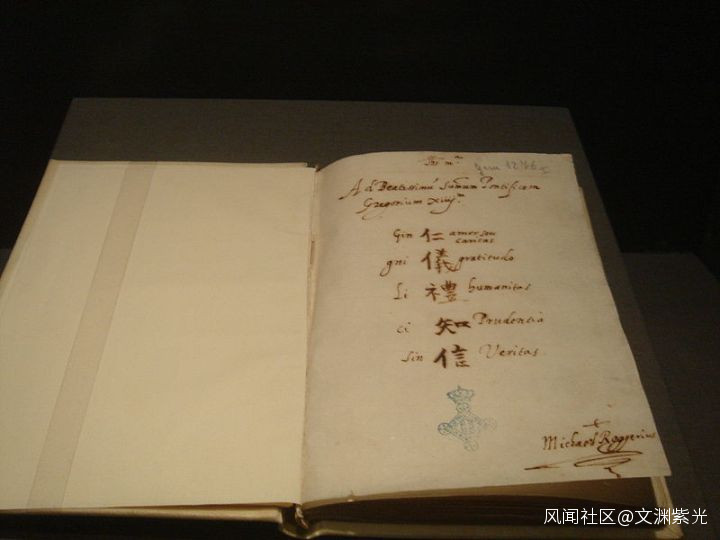 Ad Beatissimū Summum Pontificem
Gregorium xiij
Gin 仁 amor seu
caritas
gni 儀 gratitudo
Li 禮 humanitas
ci 知 Prudentia
Sin 信 Veritas
Michael Roggerius
风闻社区@文渊紫光